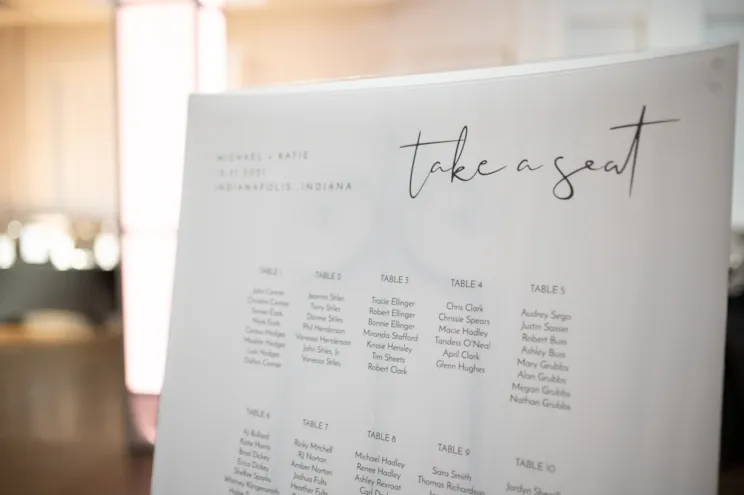 MICHAEL + KATIE
INDIANAPOLIS, INDIANA
take a seat
TABLE 1
John Conner
Christine Conner
Hodges
Hodges
Hodges
Dalton Conner
TABLE 2
Jeanna Stiles
Terry Stiles
Donnie Stiles
Phil Henderson
Vanessa Henderson
John Stiles, Jr.
Vanessa Stiles
TABLE 3
Tracie Ellinger
Robert Ellinger
Bonnie Ellinger
Miranda Stafford
Krissie Hensley
Tim Sheets
Robert Clark
TABLE 4
Chris Clark
Chrissie Spears
Macie Hadley
Tandess O'Neal
April Clark
Glenn Hughes
TABLE 5
Audrey Sego
Justin Sasser
Robert Buss
Ashley Buss
Mary Grubbs
Alan Grubbs
Megan Grubbs
Nathan Grubbs
TABLE 6
AJ Bullard
Katie Harris
Brad Dickey
Erica Dickey
Shellie Sparks
Whitney Klingensmith
TABLE 7
Ricky Mitchell
RJ Norton
Amber Norton
Joshua Fults
Heather Fults
TABLE 8
Michael Hadley
Renee Hadley
Ashley Rexroat
Carl
TABLE 9
Sara Smith
Thomas Richardson
TABLE 10
Jordyn